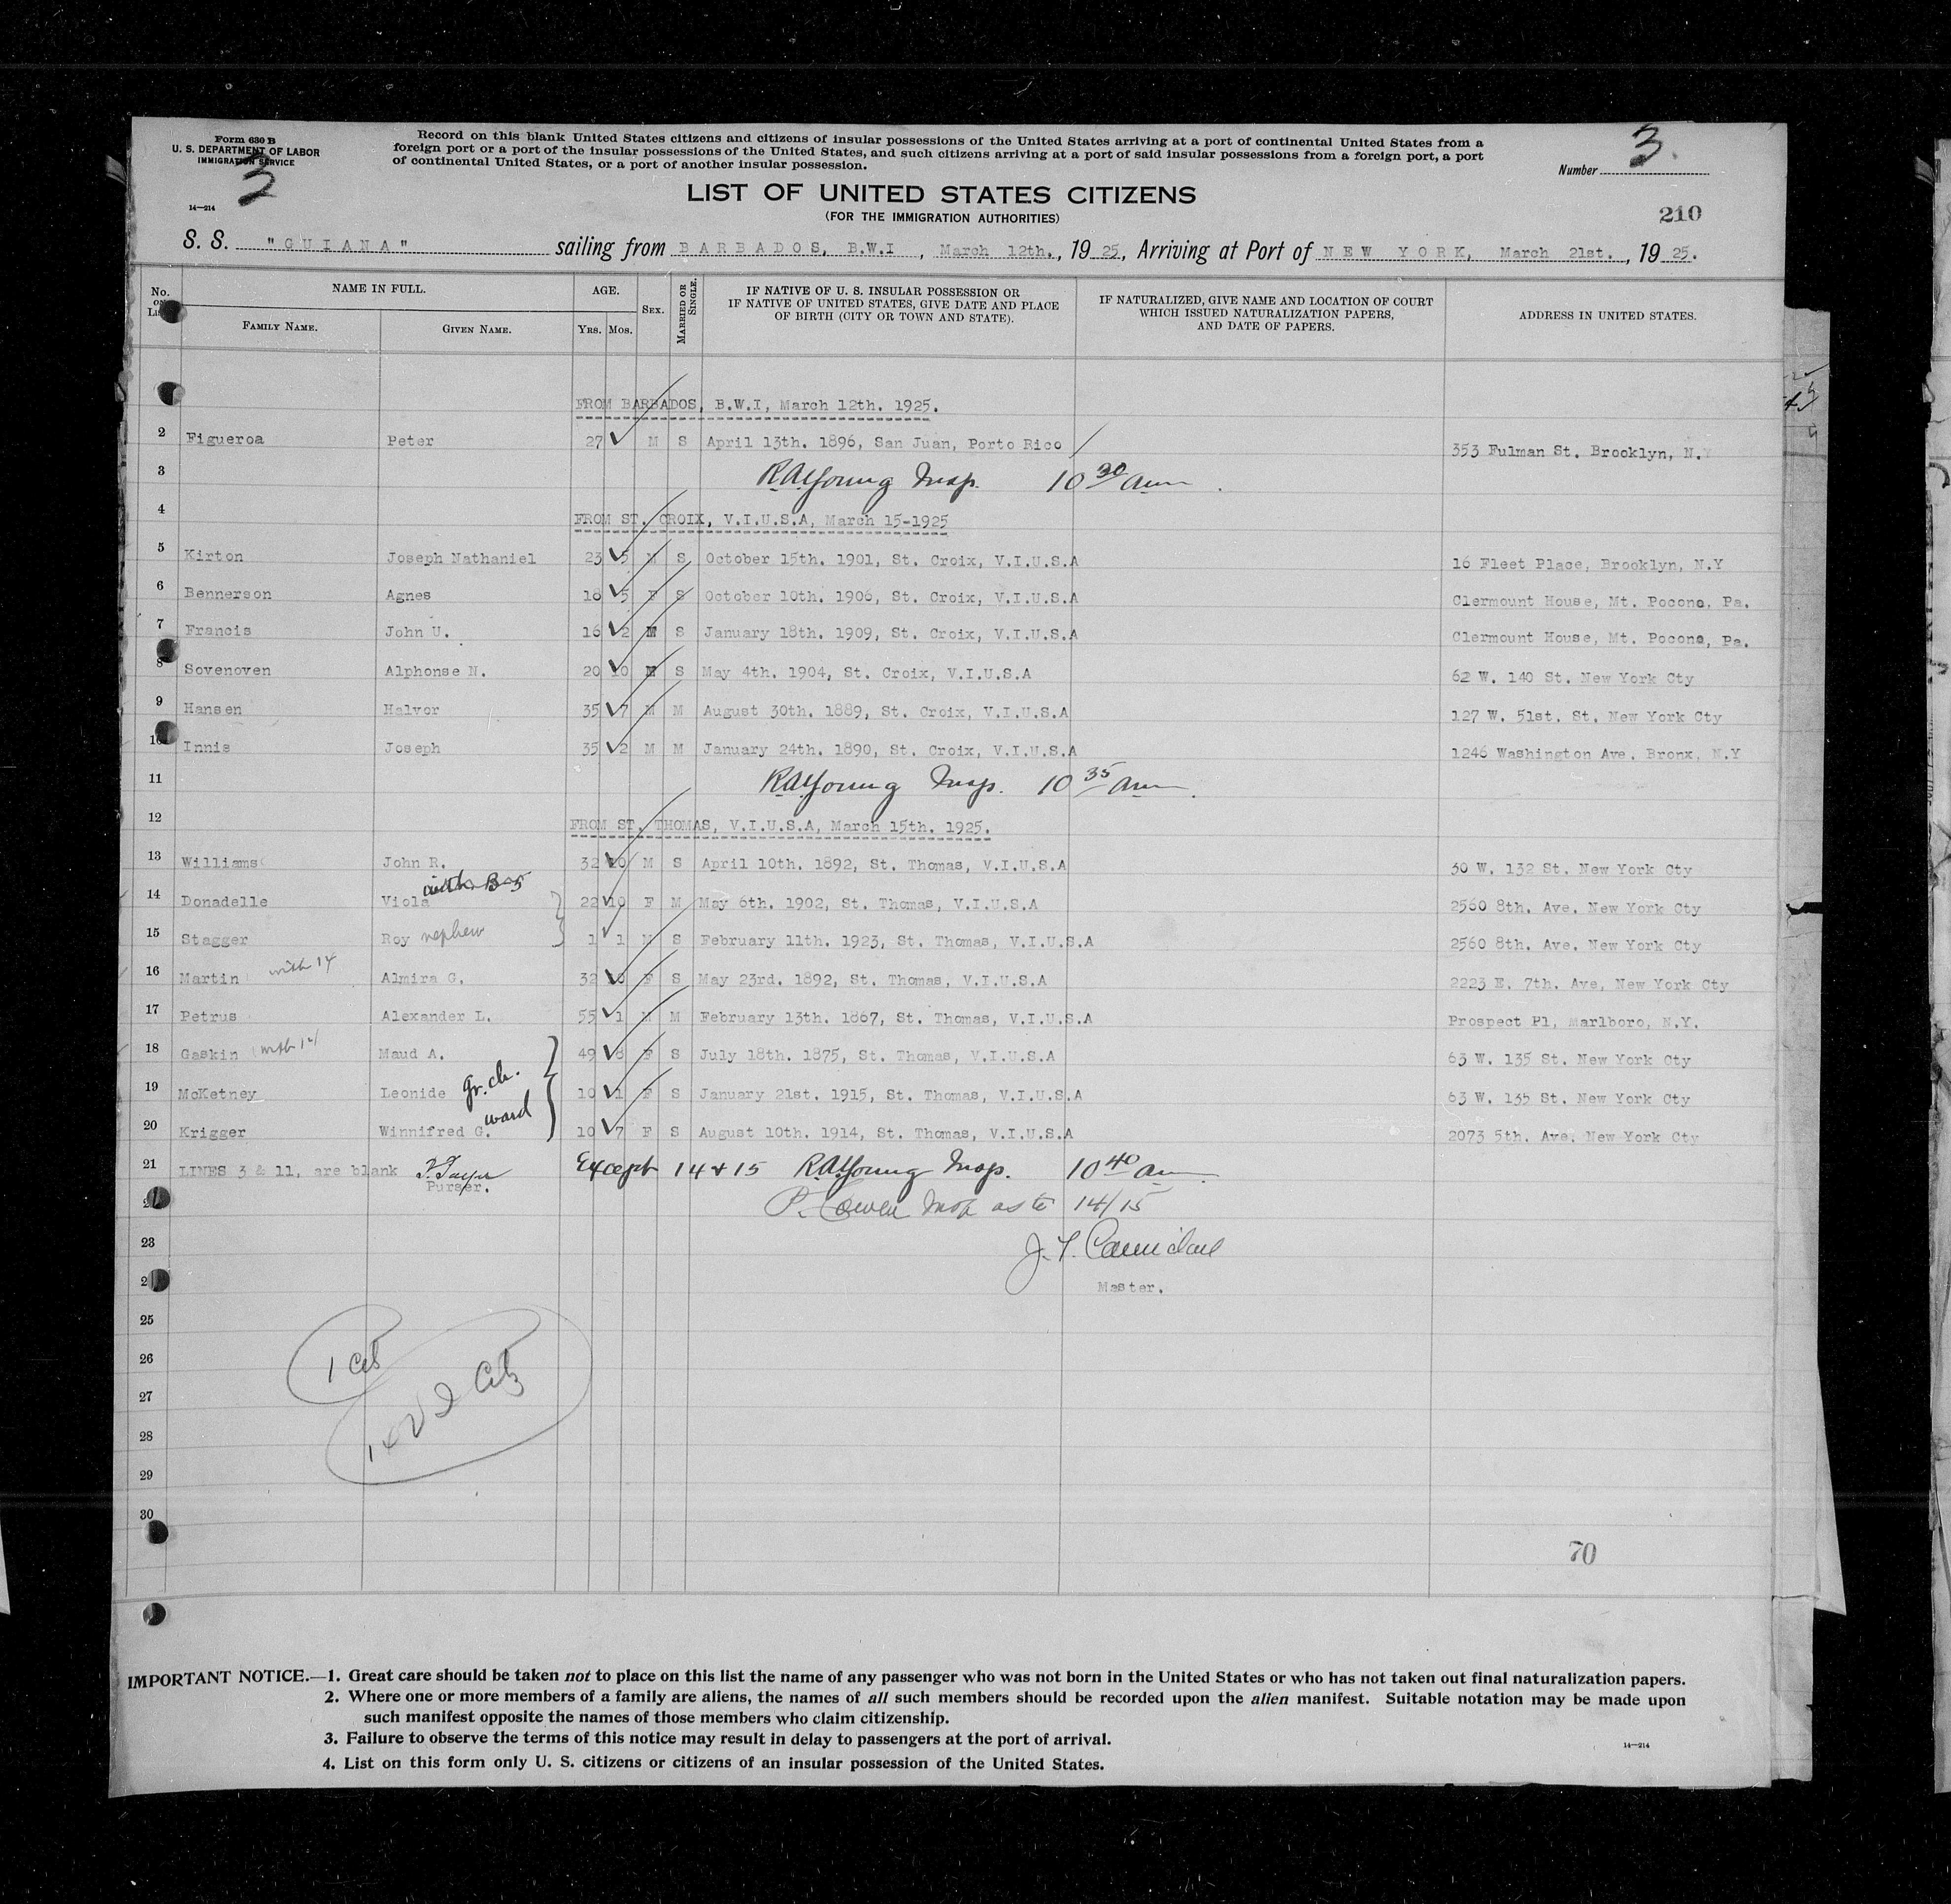 Form 630 B
U. S. DEPARTMENT OF LABOR
IMMIGRATION SERVICE
3
14—214
Record on this blank United States citizens and citizens of insular possessions of the United States arriving at a port of continental United States from a
foreign port or a port of the insular possessions of the United States, and such citizens arriving at a port of said insular possessions from a foreign port, a port
of continental United States, or a port of another insular possession.
Number 3.
LIST OF UNITED STATES CITIZENS
(FOR THE IMMIGRATION AUTHORITIES)
210
S. S. "GUIANA" sailing from BARBADOS, B.W.I , March 12th., 1925, Arriving at Port of NEW YORK, March 21st. , 1925.
No. on List
NAME IN FULL.
FAMILY NAME.
GIVEN NAME.
AGE.
Yrs. Mos.
SEX.
MARRIED OR SINGLE.
IF NATIVE OF U. S. INSULAR POSSESSION OR
IF NATIVE OF UNITED STATES, GIVE DATE AND PLACE
OF BIRTH (CITY OR TOWN AND STATE).
IF NATURALIZED, GIVE NAME AND LOCATION OF COURT
WHICH ISSUED NATURALIZATION PAPERS,
AND DATE OF PAPERS.
ADDRESS IN UNITED STATES.
FROM BARBADOS, B.W.I, March 12th. 1925.
2 Figueroa Peter 27 M S April 13th. 1896, San Juan, Porto Rico 353 Fulman St. Brooklyn, N.Y
3 RAYoung Insp. 10 30 am
4 FROM ST. CROIX, V.I.U.S.A, March 15-1925
5 Kirton Joseph Nathaniel 23 5 M S October 15th. 1901, St. Croix, V.I.U.S.A 16 Fleet Place, Brooklyn, N.Y
6 Bennerson Agnes 18 5 F S October 10th. 1906, St. Croix, V.I.U.S.A Clermount House, Mt. Pocono, Pa.
7 Francis John U. 16 2 M S January 18th. 1909, St. Croix, V.I.U.S.A Clermount House, Mt. Pocono, Pa.
8 Sovenoven Alphonse N. 20 10 M S May 4th. 1904, St. Croix, V.I.U.S.A 62 W. 140 St. New York Cty
9 Hansen Halvor 35 7 M M August 30th. 1889, St. Croix, V.I.U.S.A 127 W. 51st. St. New York Cty
10 Innis Joseph 35 2 M M January 24th. 1890, St. Croix, V.I.U.S.A 1246 Washington Ave. Bronx, N.Y
11 RAYoung Insp. 10 35 am
12 FROM ST. THOMAS, V.I.U.S.A, March 15th. 1925.
13 Williams John R. 32 10 M S April 10th. 1892, St. Thomas, V.I.U.S.A 30 W. 132 St. New York Cty
with B-5
14 Donadelle Viola 22 10 F M May 6th. 1902, St. Thomas, V.I.U.S.A 2560 8th. Ave. New York Cty
15 Stagger Roy nephew 1 1 M S February 11th. 1923, St. Thomas, V.I.U.S.A 2560 8th. Ave. New York Cty
16 Martin with 14 Almira G. 32 10 F S May 23rd. 1892, St. Thomas, V.I.U.S.A 2223 E. 7th. Ave, New York Cty
17 Petrus Alexander L. 55 1 M M February 13th. 1867, St. Thomas, V.I.U.S.A Prospect Pl, Marlboro, N.Y.
18 Gaskin with 14 Maud A. 49 8 F S July 18th. 1875, St. Thomas, V.I.U.S.A 63 W. 135 St. New York Cty
19 McKetney Leonide gr. ch. 10 1 F S January 21st. 1915, St. Thomas, V.I.U.S.A 63 W. 135 St. New York Cty
20 Krigger Winnifred G. ward 10 7 F S August 10th. 1914, St. Thomas, V.I.U.S.A 2073 5th. Ave. New York Cty
21 LINES 3 & 11, are blank Except 14 & 15 RAYoung Insp. 10 40 am
Purser.
P. Cowen Insp as to 14/15
23
Master.
25
26 1 Cit
27
28
29
30
70
IMPORTANT NOTICE.—1. Great care should be taken not to place on this list the name of any passenger who was not born in the United States or who has not taken out final naturalization papers.
2. Where one or more members of a family are aliens, the names of all such members should be recorded upon the alien manifest. Suitable notation may be made upon
such manifest opposite the names of those members who claim citizenship.
3. Failure to observe the terms of this notice may result in delay to passengers at the port of arrival.
4. List on this form only U. S. citizens or citizens of an insular possession of the United States.
14—214